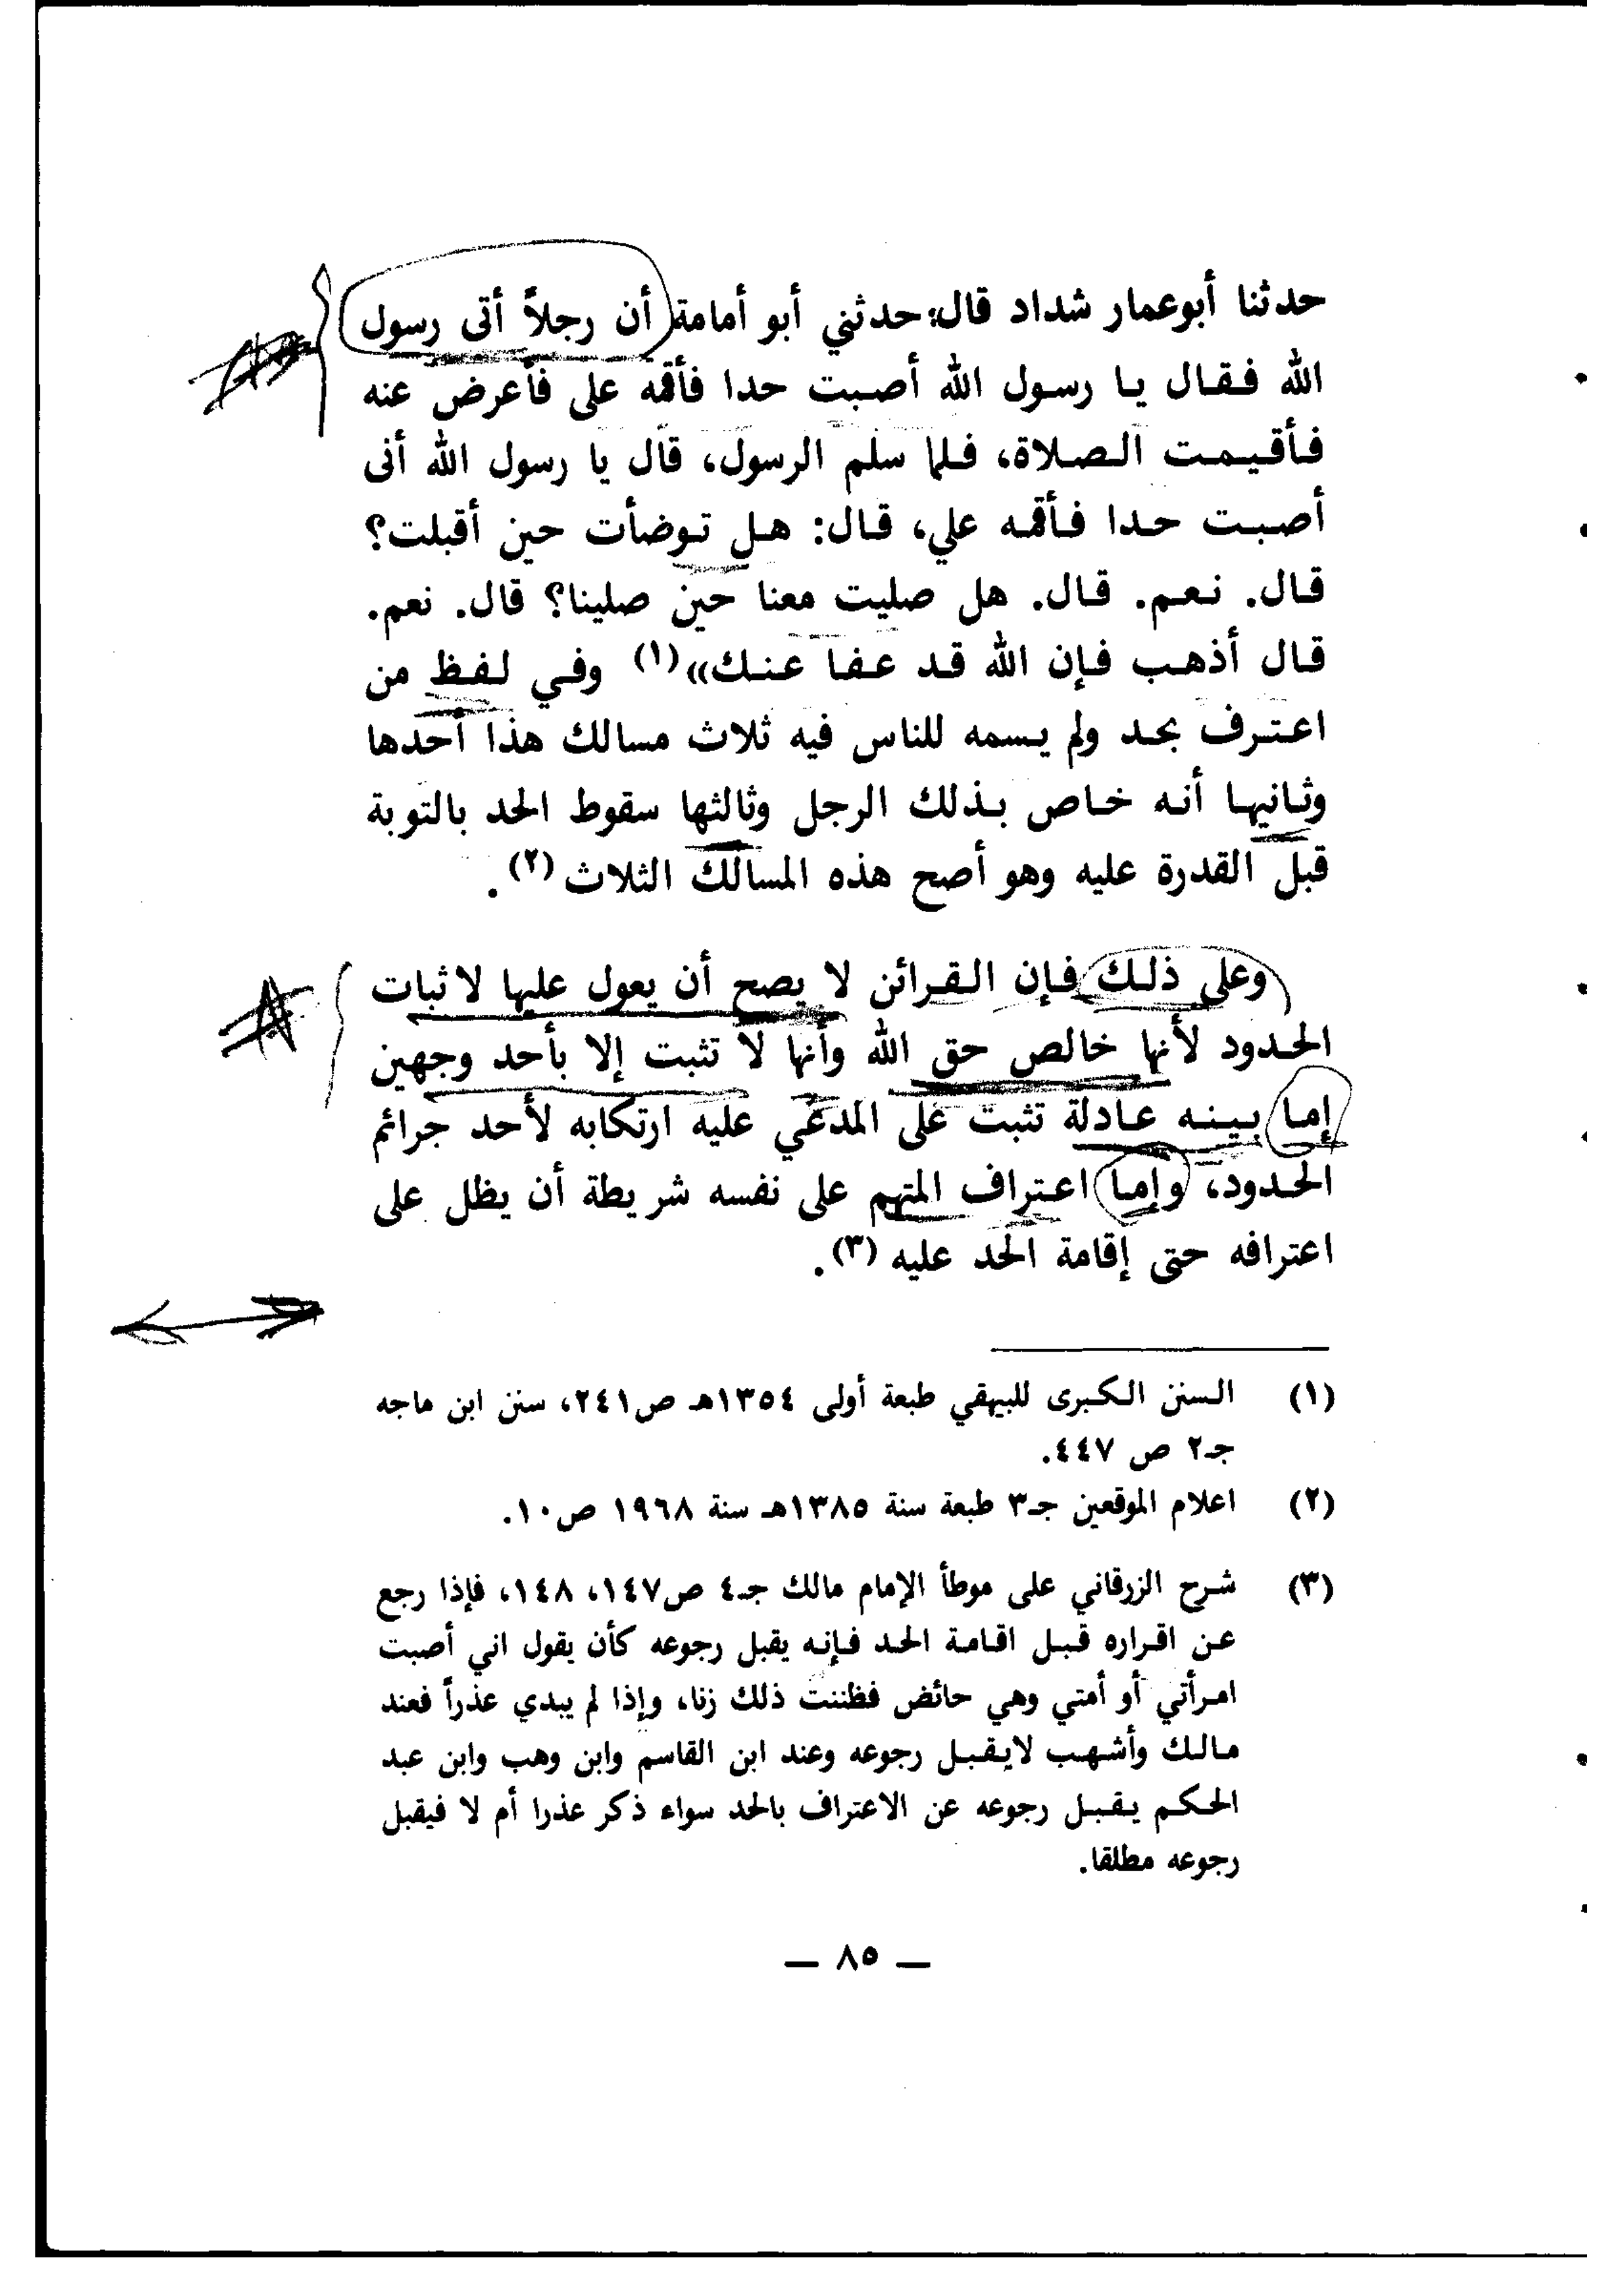 حدثنا أبوعمار شداد قال: حدثني أبو أمامة أن رجلاً أتى رسول
الله فقال يا رسول الله أصبت حدا فأقمه على فأعرض عنه
فأقيمت الصلاة، فلما سلم الرسول، قال يا رسول الله أنى
أصبت حدا فأقمه علي، قال: هل توضأت حين أقبلت؟
قال. نعم. قال. هل صليت معنا حين صلينا؟ قال. نعم.
قال أذهب فإن الله قد عفا عنك» (١) وفي لفظ من
اعترف بحد ولم يسمه للناس فيه ثلاث مسالك هذا أحدها
وثانيها أنه خاص بذلك الرجل وثالثها سقوط الحد بالتوبة
قبل القدرة عليه وهو أصح هذه المسالك الثلاث (٢).
وعلى ذلك فإن القرائن لا يصح أن يعول عليها لاثبات
الحدود لأنها خالص حق الله وأنها لا تثبت إلا بأحد وجهين
إما بينه عادلة تثبت على المدعي عليه ارتكابه لأحد جرائم
الحدود، وإما اعتراف المتهم على نفسه شريطة أن يظل على
اعترافه حتى إقامة الحد عليه (٣).
(١) السنن الكبرى للبيهقي طبعة أولى ١٣٥٤هـ ص٢٤١، سنن ابن ماجه
جـ٢ ص ٤٤٧.
(٢) اعلام الموقعين جـ٣ طبعة سنة ١٣٨٥هـ سنة ١٩٦٨ ص١٠.
(٣) شرح الزرقاني على موطأ الإمام مالك جـ٤ ص١٤٧، ١٤٨، فإذا رجع
عن اقراره قبل اقامة الحد فإنه يقبل رجوعه كأن يقول اني أصبت
امرأتي أو أمتي وهي حائض فظننت ذلك زنا، وإذا لم يبدي عذراً فعند
مالك وأشهب لايقبل رجوعه وعند ابن القاسم وابن وهب وابن عبد
الحكم يقبل رجوعه عن الاعتراف بالحد سواء ذكر عذرا أم لا فيقبل
رجوعه مطلقا.
— ٨٥ —